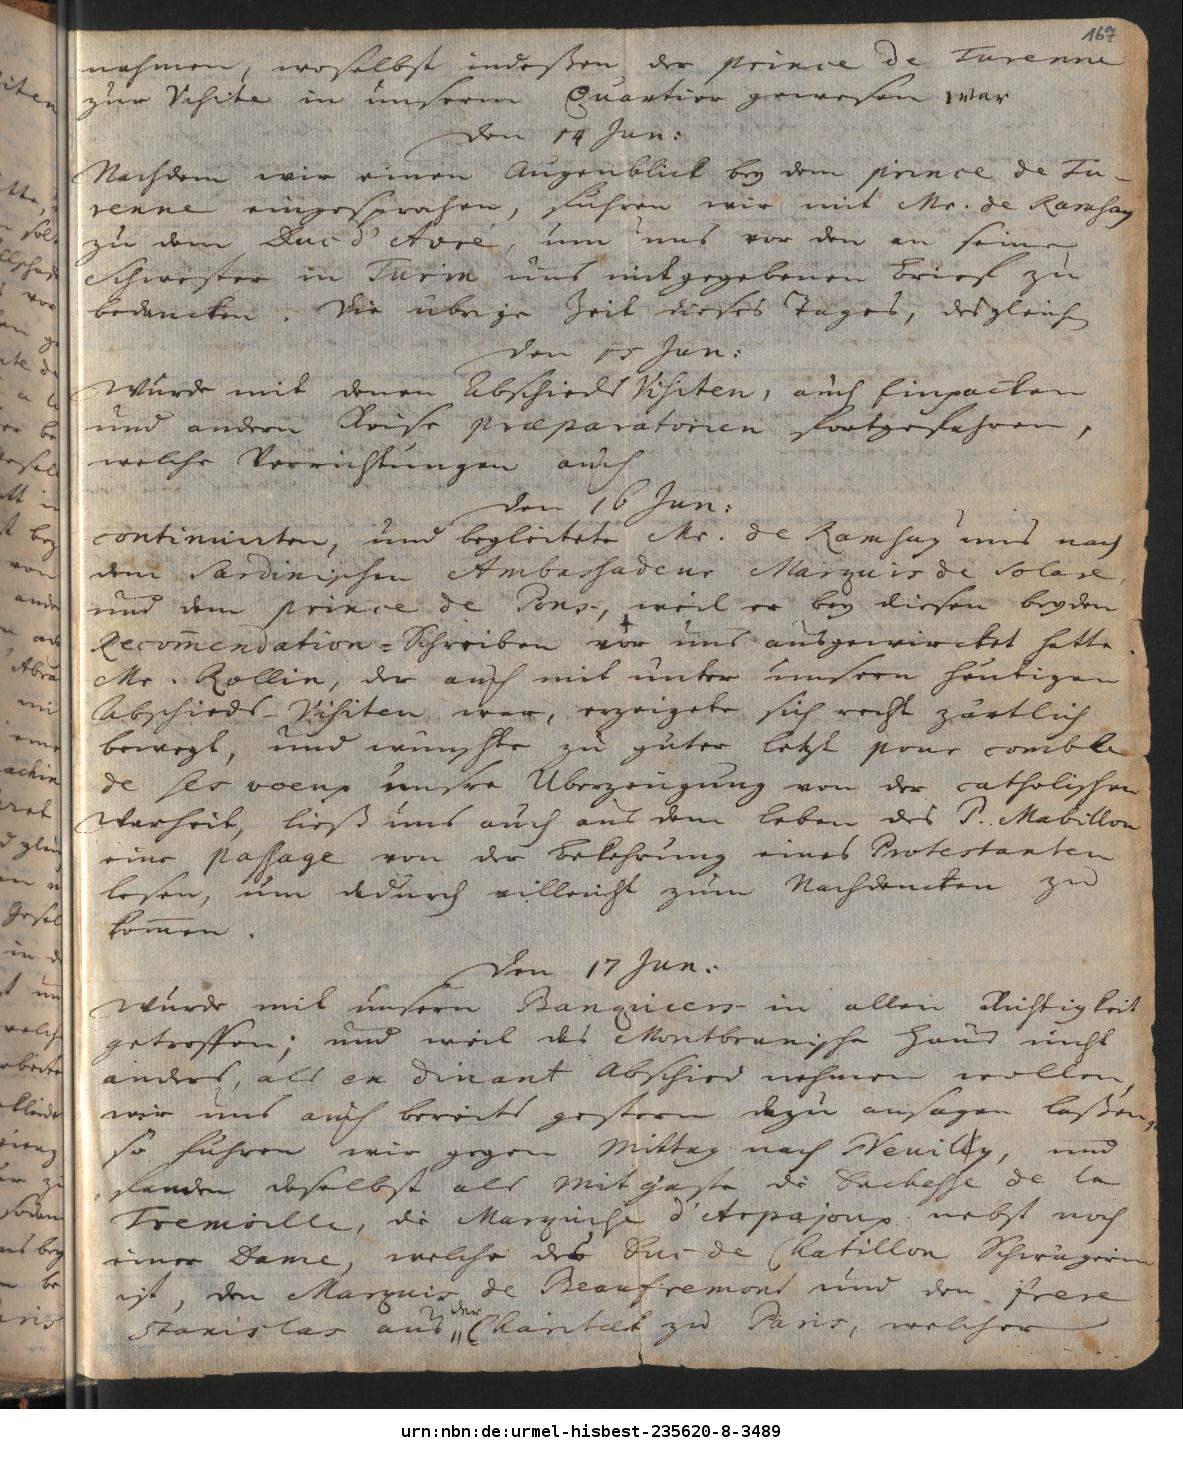 167
nahmen, woselbst indeßen der prince de Turenne
zur Visite in unserm Quartier gewesen war
den 14 Jun:
Nachdem wir einen Augenblick bey dem prince de Tu-
renne eingesprochen, fuhren wir mit Mr. de Ramsay
zu dem Duc d'Avré, um uns vor den an seine
Schwester in Turin uns mitgegebenen Brief zu
bedancken. Die übrige Zeit dieses Tages, desgleichen
den 15 Jun:
wurde mit denen Abschieds Visiten, auch Einpacken
und andern Reise præparatorien fortgefahren,
welche Verrichtungen auch
den 16 Jun:
continuirten, und begleitete Mr. de Ramsay uns nach
dem Sardinischen Ambassadeur Marquis de Solare,
und dem prince de Pons, weil er bey diesen beyden
Recom̄endation-Schreiben vor uns ausgewircket hatte.
Mr. Rollin, der auch mit unter unsern heutigen
Abschieds-Visiten war, erzeigete sich recht zärtlich
bewegt, und wünschte zu guter letzt pour comble
de ses voeux unsre Uberzeugung von der catholischen
Warheit, ließ uns auch aus dem Leben des P. Mabillon
eine passage von der Bekehrung eines Protestanten
lesen, um dadurch villeicht zum Nachdencken zu
kom̄en.
den 17 Jun:
wurde mit unsern Banquiers in allen Richtigkeit
getroffen; und weil das Montbrunische Haus nicht
anders, als en dinant Abschied nehmen wollen,
wir uns auch bereits gestern dazu ansagen laßen,
so fuhren wir gegen Mittag nach Neuilly, und
fanden daselbst als Mitgäste die Duchesse de la
Tremoille, die Marquise d'Arpajoux nebst noch
einer Dame, welche des Duc de Chatillon Schwägerin
ist, den Marquis de Beaufremont und den frere
Stanislas aus der Charitét zu Paris, welcher
urn:nbn:de:urmel-hisbest-235620-8-3489